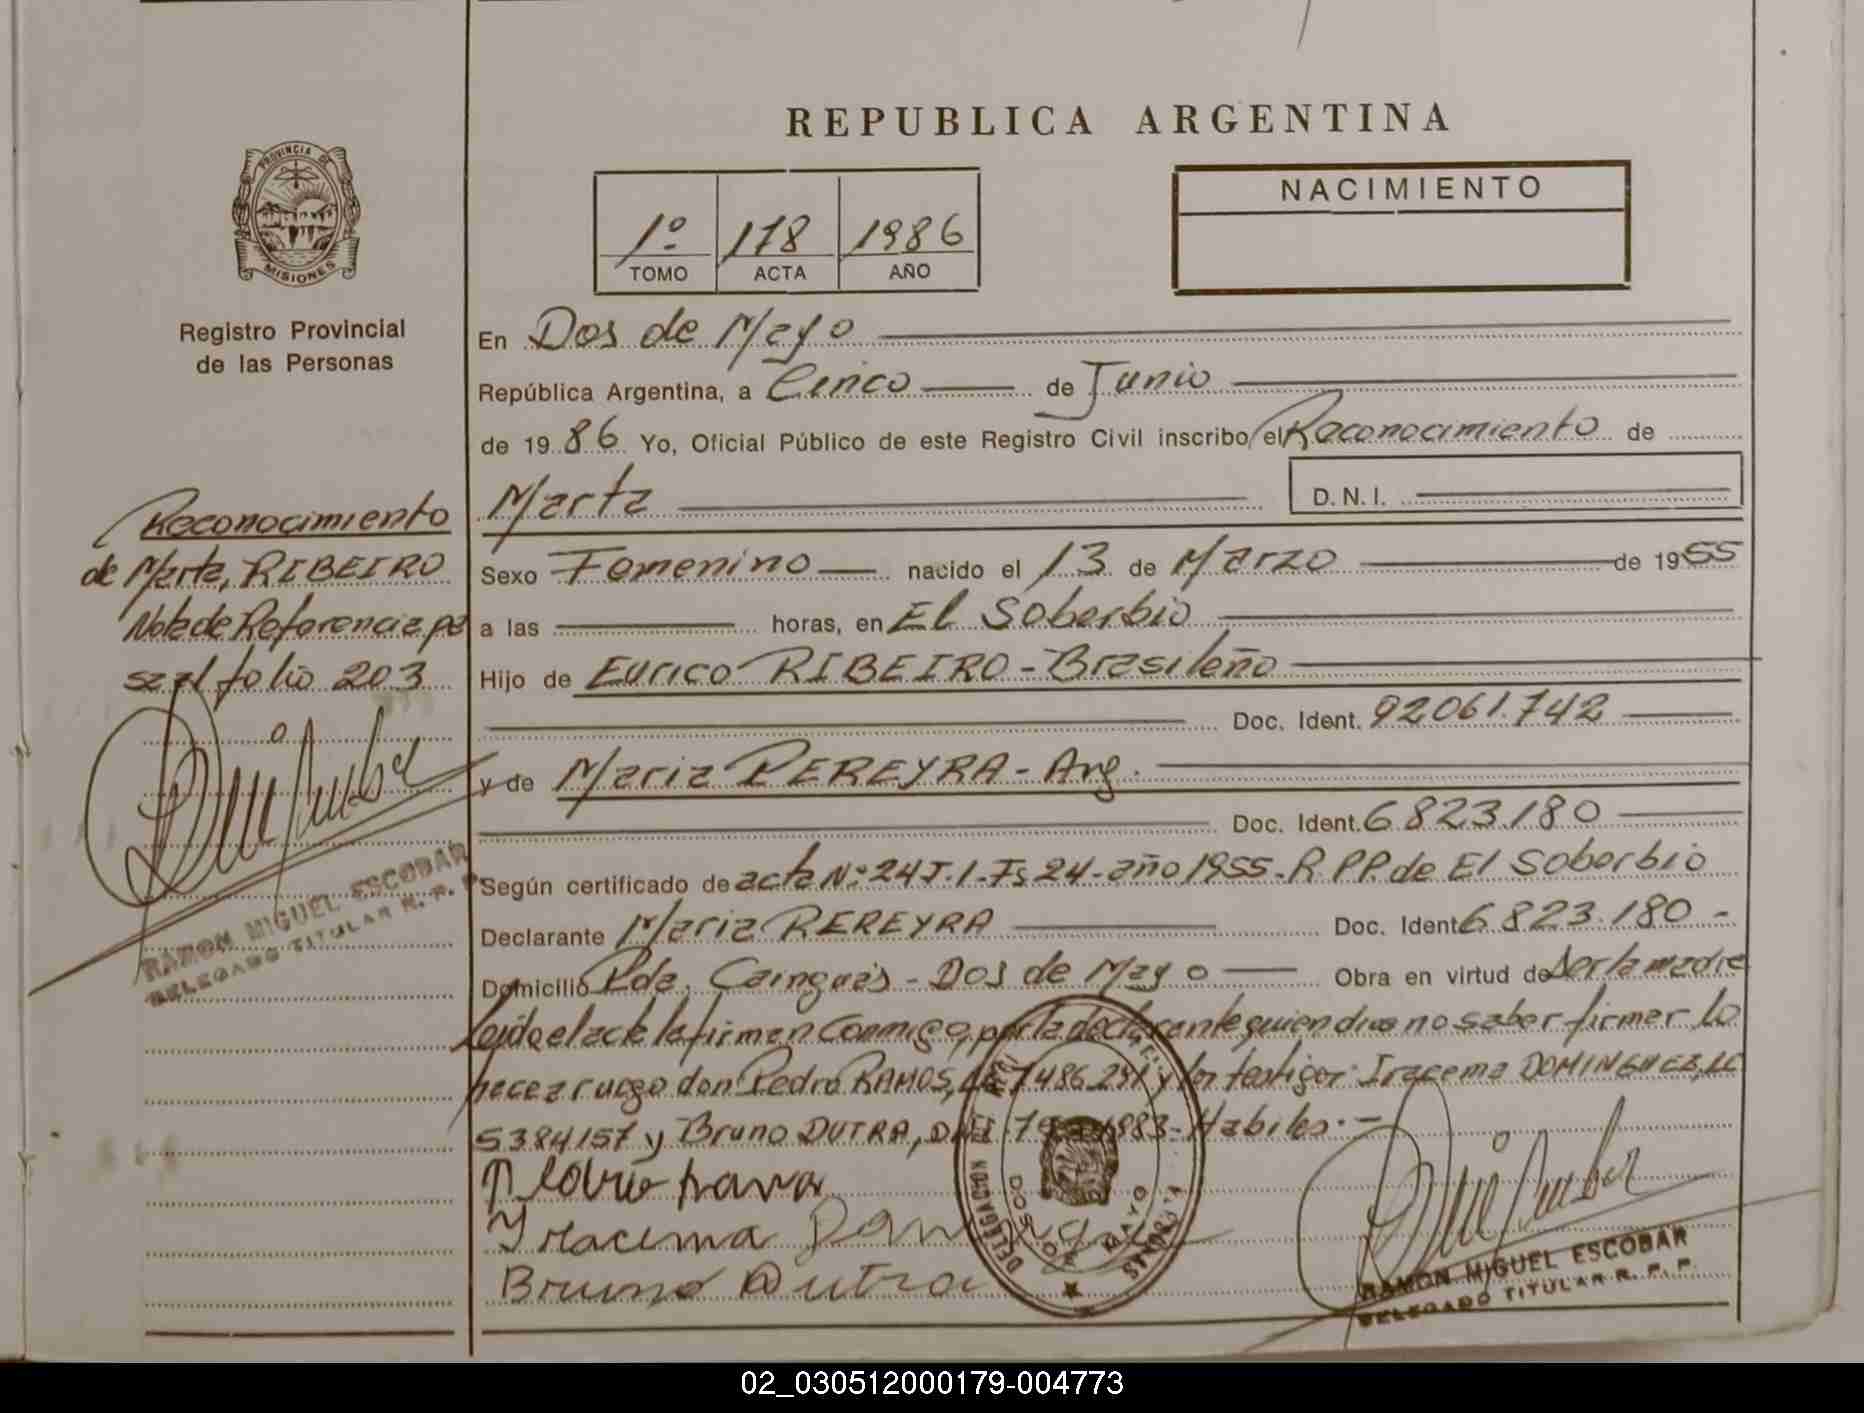 REPUBLICA ARGENTINA
PROVINCIA DE
MISIONES
Registro Provincial
de las Personas
1º 178 1986
TOMO ACTA AÑO
NACIMIENTO
En Dos de Mayo
República Argentina, a Cinco de Junio
de 19 86 Yo, Oficial Público de este Registro Civil inscribo el Reconocimiento de
Marta D.N.I.
Sexo Femenino nacido el 13 de Marzo de 1955
a las horas, en El Soberbio
Hijo de Eurico RIBEIRO - Brasileño
Doc. Ident. 92061.742
y de Maria PEREYRA - Arg.
Doc. Ident. 6823.180
Según certificado de acta Nº 24 T.1-Fs 24-año 1955-R.P.P. de El Soberbio
Declarante Maria PEREYRA Doc. Ident 6.823.180 -
Domicilio Pda. Cainguás - Dos de Mayo Obra en virtud de ser la madre
Leida el acta la firman conmigo, por la declarante quien dice no saber firmar lo
hace a ruego don Pedro RAMOS, 7486291 y los testigos Iracema DOMINGUEZ, LC
5384157 y Bruno DUTRA, DNI Habiles.-
Iracema
Bruno Dutra
DELEGACION
DOS DE MAYO
RAMON MIGUEL ESCOBAR
DELEGADO TITULAR R. P. P.
Reconocimiento
de Marta, RIBEIRO
Nota de Referencia pa
sa al folio 203
RAMON MIGUEL ESCOBAR
DELEGADO TITULAR R. P. P.
02_030512000179-004773